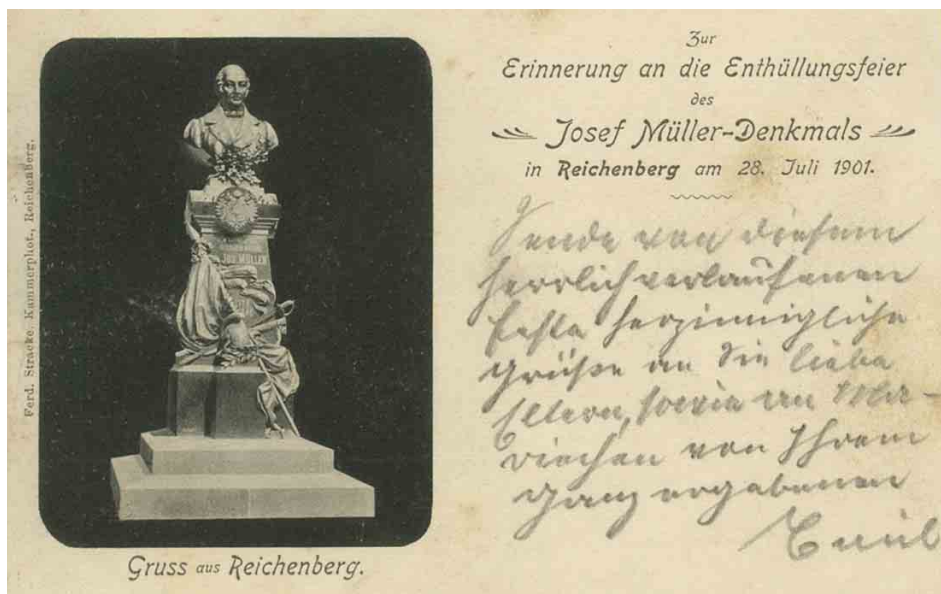 Ferd. Stracke, Kammerphot., Reichenberg.
JOS. MÜLLER
Gruss aus Reichenberg.
Zur
Erinnerung an die Enthüllungsfeier
des
Josef Müller-Denkmals
in Reichenberg am 28. Juli 1901.
Sende von diesem
herrlich verlaufenen
Feste herzinnigliche
Grüße an Sie liebe
Eltern, sowie an Ma-
riechen von Ihrem
ganz ergebenen
Emil